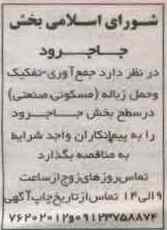 شورای اسلامی بخش
جاجرود
در نظر دارد جمع آوری-تفکیک
وحمل زباله (مسکونی،صنعتی)
درسطح بخش جاجرود
را به پیمانکاران واجد شرایط
به مناقصه بگذارد
تماس روزهای زوج از ساعت
۹ الی ۱۴ تماس از تاریخ چاپ آگهی
۰۹۱۲۳۷۵۸۸۷۴و۷۶۲۰۲۰۱۲